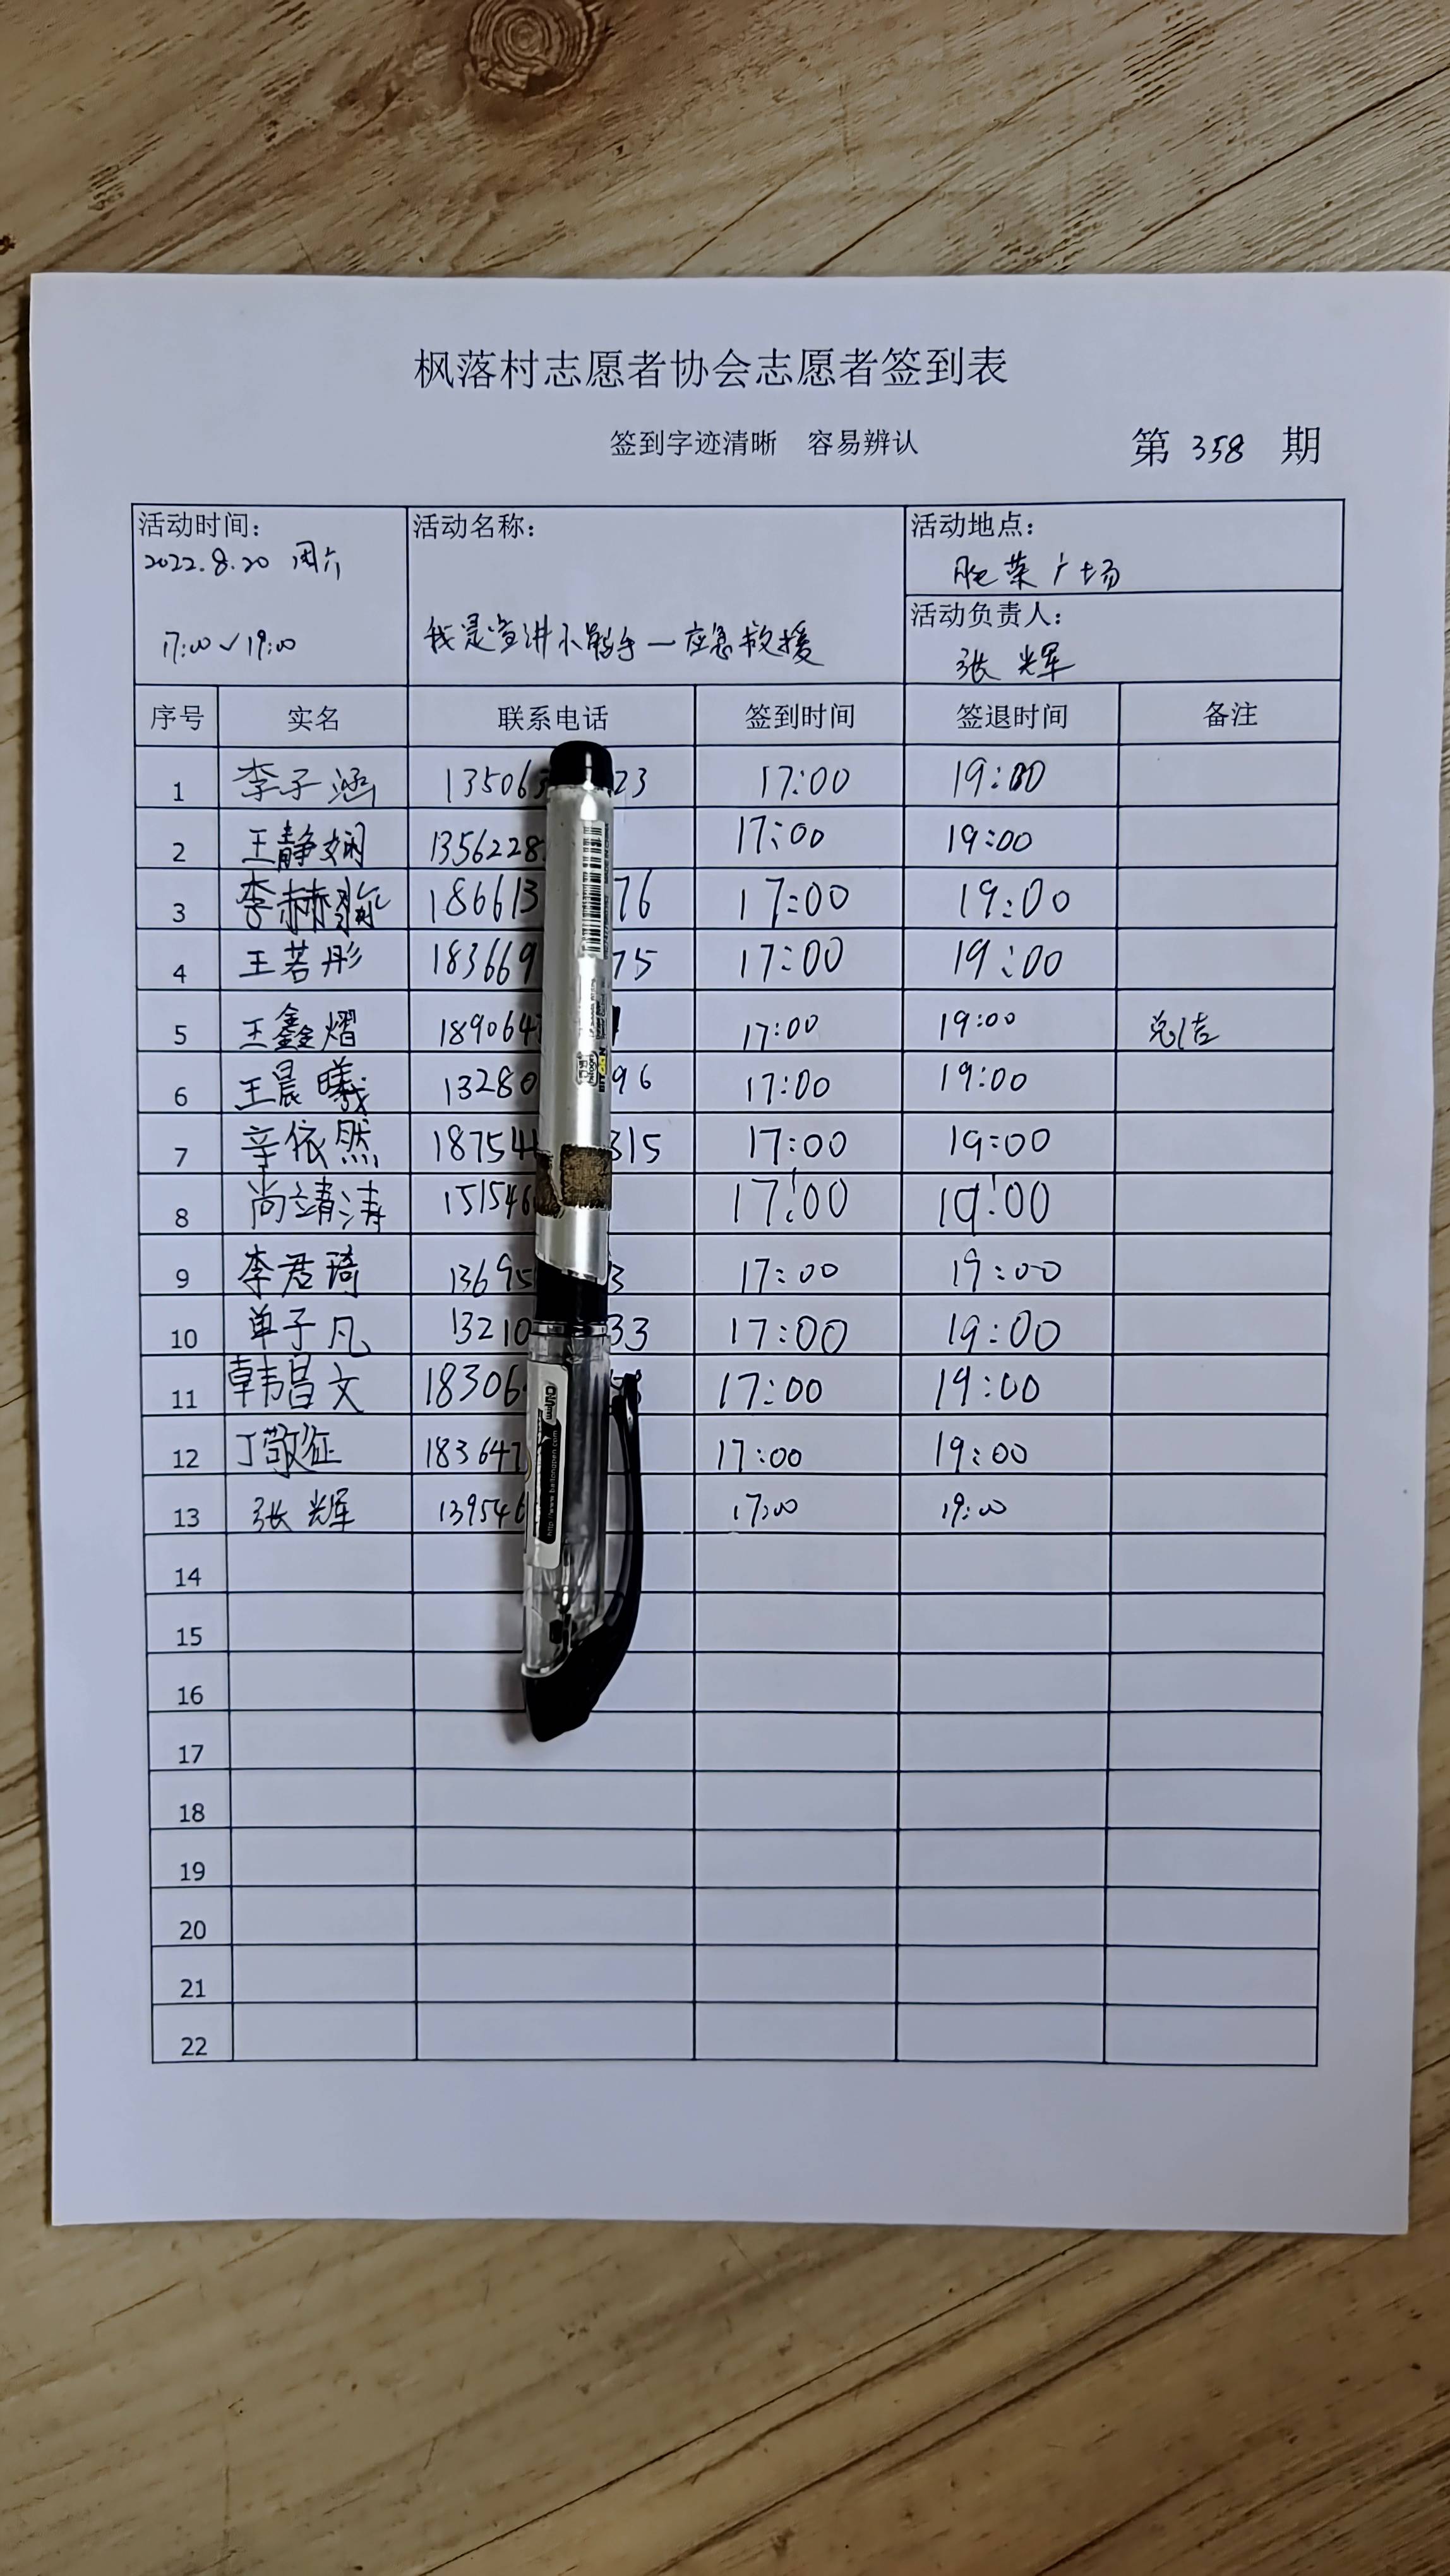 枫落村志愿者协会志愿者签到表
签到字迹清晰 容易辨认 第 358 期
活动时间: 活动名称: 活动地点:
2022.8.20 周六 广场
活动负责人:
17:00~19:00 我是宣讲小能手一应急救援
张辉
序号 实名 联系电话 签到时间 签退时间 备注
1 李子涵 13506 23 17:00 19:00
2 王静娴 1356228 17:00 19:00
3 李赫 186613 76 17:00 19:00
4 王若彤 183669 75 17:00 19:00
5 王鑫熠 189064 17:00 19:00 总结
6 王晨曦 13280 96 17:00 19:00
7 辛依然 18754 315 17:00 19:00
8 尚靖涛 151546 17:00 19:00
9 李君琦 13695 3 17:00 19:00
10 单子凡 13210 33 17:00 19:00
11 韩昌文 18306 17:00 19:00
12 丁敬征 183647 17:00 19:00
13 张辉 139546 17:00 19:00
14
15
16
17
18
19
20
21
22
http://www.baitongpen.com